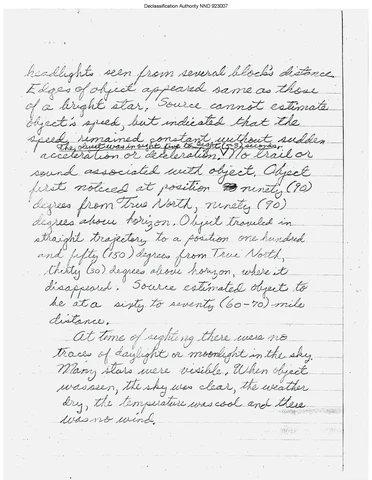 Declassification Authority NND 923007
headlights seen from several block's distance
Edges of object appeared same as those
of a bright star. Source cannot estimate
object's speed, but indicated that the
speed remained constant without sudden
The object was in sight five to eight (5-8) seconds.
acceleration or deceleration. No trail or
sound associated with object. Object
first noticed at position ninety (90)
degrees from True North, ninety (90)
degrees above horizon. Object traveled in
straight trajectory to a position one hundred
and fifty (150) degrees from True North,
thirty (30) degrees above horizon, where it
disappeared. Source estimated object to
be at a sixty to seventy (60-70) mile
distance.
At time of sighting there were no
traces of daylight or moonlight in the sky.
Many stars were visible. When object
was seen, the sky was clear, the weather
dry, the temperature was cool and there
was no wind.